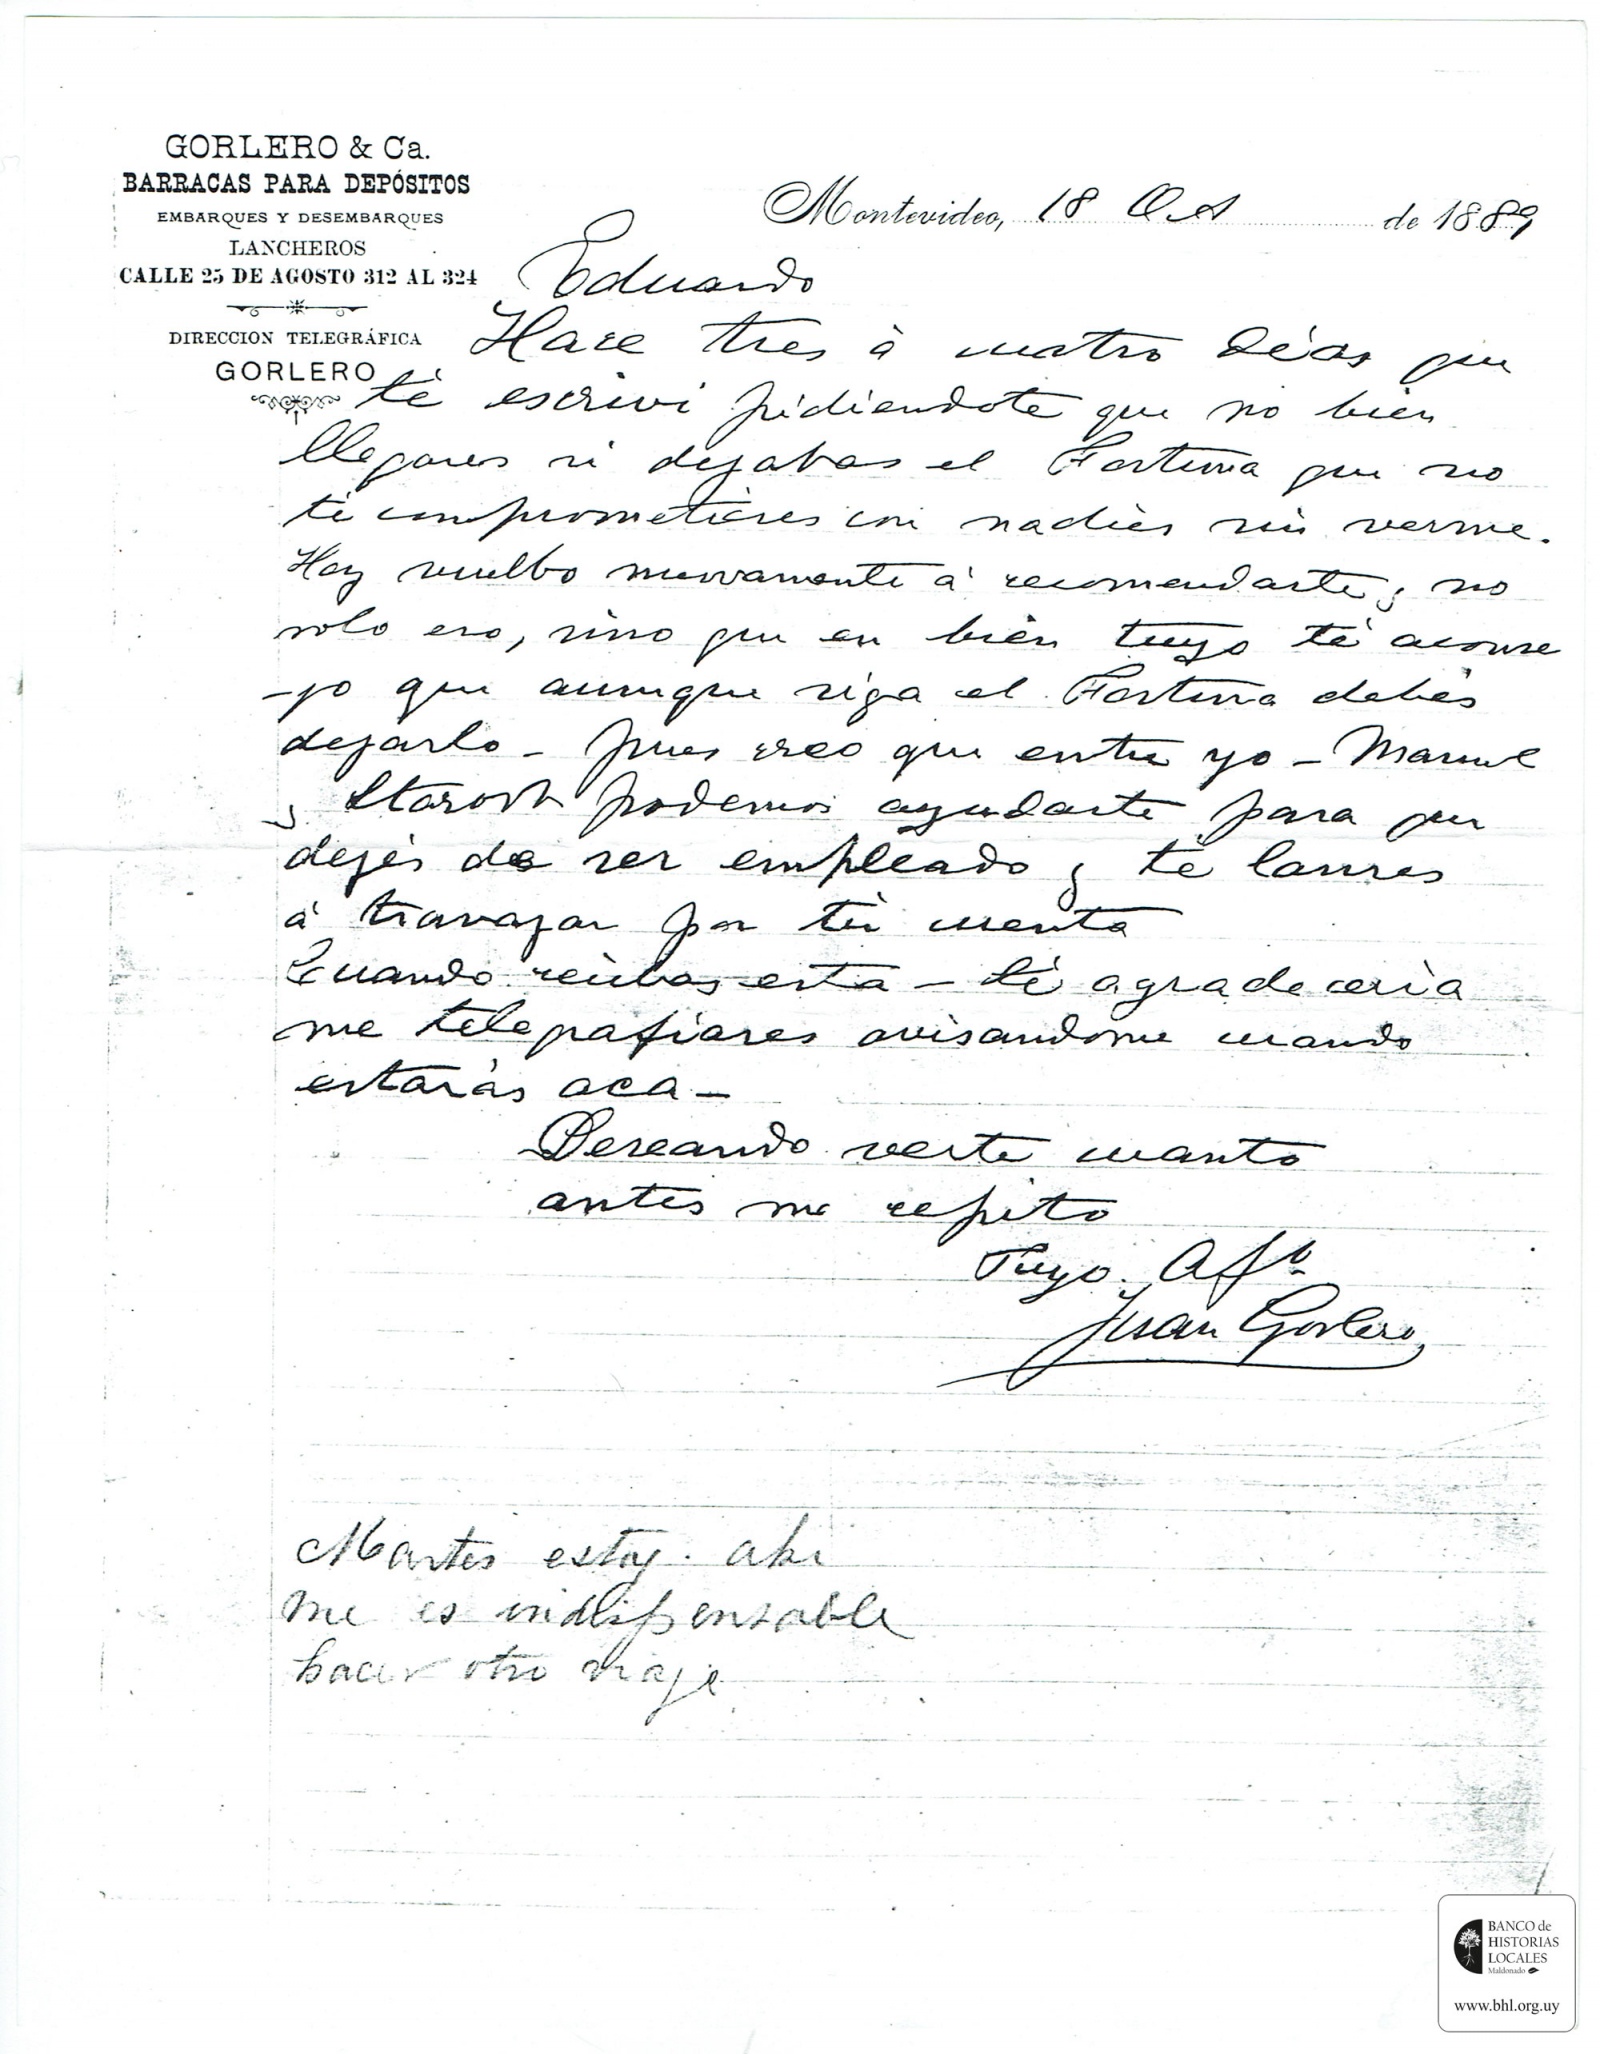 GORLERO & Ca.
BARRACAS PARA DEPÓSITOS
EMBARQUES Y DESEMBARQUES
LANCHEROS
CALLE 25 DE AGOSTO 312 AL 324
DIRECCION TELEGRÁFICA
GORLERO
Montevideo, 18 Oct de 1889
Eduardo
Hace tres á cuatro dias que
té escrivi pidiendote que no bien
llegares si dejabas el Fortuna que no
té comprometieres con nadies sin verme.
Hoy vuelbo nuevamente á recomendarte, no
solo eso, sino que en bien tuyo té aconse
-jo que aunque siga el Fortuna debés
dejarlo - pues creo que entre yo - Manuel
y podemos ayudarte para que
dejés de ser empleado y té lanses
á travajar por tú cuenta
Cuando recibas esta - té agradeceria
me telegrafiares avisandome cuando
estarás aca -
Deseando verte cuanto
antes me repito
Tuyo Afº
Juan Gorlero
Martes estoy ahi
me es indispensable
hacer otro viaje
BANCO de
HISTORIAS
LOCALES
Maldonado
www.bhl.org.uy